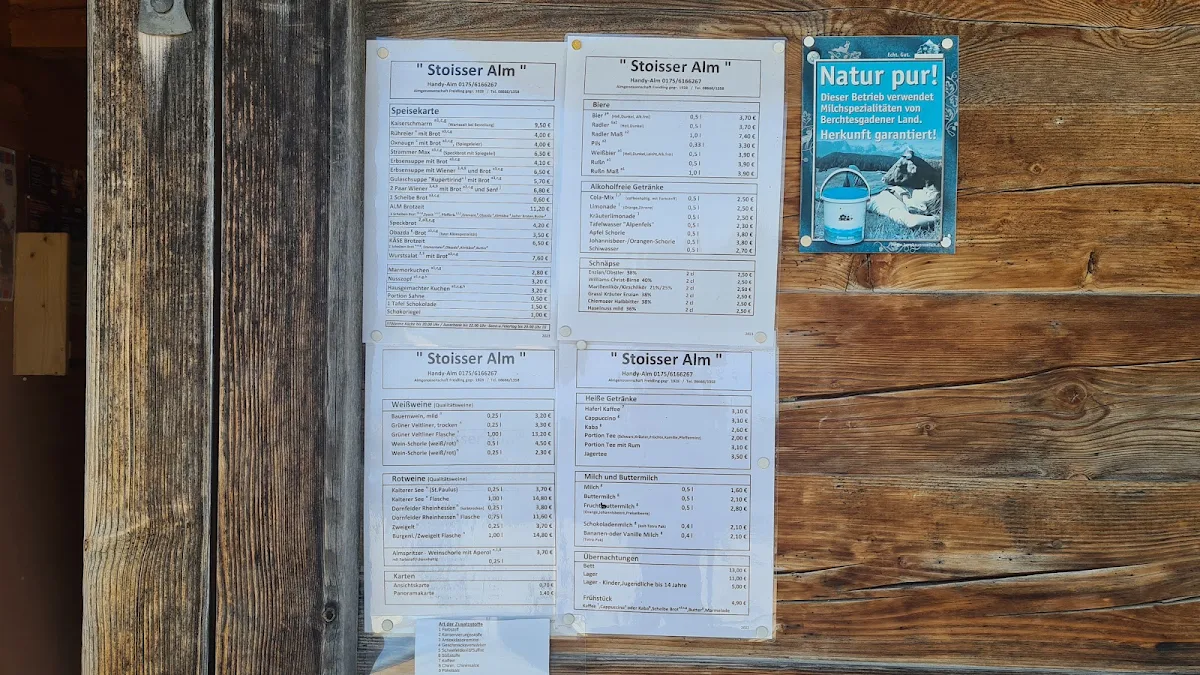 " Stoisser Alm "
Handy-Alm 0175/6166267
Almgenossenschaft Freidling gegr. 1920 / Tel. 08666/1208
Speisekarte
Kaiserschmarrn (Wartezeit bei Bereitung) 9,50 €
Rühreier mit Brot 4,00 €
Oknaugn mit Brot (Spiegeleier) 4,00 €
Strammer Max (Speckbrot mit Spiegelei) 6,50 €
Erbsensuppe mit Brot 4,10 €
Erbsensuppe mit Wiener und Brot 6,50 €
Gulaschsuppe "Rupertirind" mit Brot 5,70 €
2 Paar Wiener mit Brot und Senf 6,80 €
1 Scheibe Brot 0,60 €
ALM Brotzeit 11,20 €
Speckbrot 4,20 €
Obazda Brot 5,50 €
KÄSE Brotzeit 6,50 €
Wurstsalat mit Brot 7,60 €
Marmorkuchen 2,80 €
Nusszopf 3,20 €
Hausgemachter Kuchen 3,20 €
Portion Sahne 0,50 €
1 Tafel Schokolade 1,50 €
Schokoriegel 1,00 €
" Stoisser Alm "
Handy-Alm 0175/6166267
Biere
Bier (Hell,Dunkel, Alk.frei) 0,5 l 3,70 €
Radler (Hell,Dunkel) 0,5 l 3,70 €
Radler Maß 1,0 l 7,40 €
Pils 0,33 l 3,30 €
Weißbier (Hell,Dunkel,Leicht,Alk.frei) 0,5 l 3,90 €
Rußn 0,5 l 3,90 €
Rußn Maß 1,0 l
Alkoholfreie Getränke
Cola-Mix 0,5 l 2,50 €
Limonade (Orange,Zitrone) 0,5 l 2,50 €
Kräuterlimonade 0,5 l 2,50 €
Tafelwasser "Alpenfels" 0,5 l 2,30 €
Apfel Schorle 0,5 l 3,80 €
Johannisbeer-/Orangen-Schorle 0,5 l 3,80 €
Schiwasser 0,5 l 2,70 €
Schnäpse
Enzian/Obstler 38% 2 cl 2,50 €
Williams-Christ-Birne 40% 2 cl 2,50 €
Marillenlikör/Kirschlikör 21%/25% 2 cl 2,50 €
Grassl Kräuter Enzian 38% 2 cl 2,50 €
Chiemseer Halbbitter 38% 2 cl 2,50 €
Haselnuss mild 36% 2 cl 2,50 €
Echt. Gut.
Natur pur!
Dieser Betrieb verwendet
Milchspezialitäten von
Berchtesgadener Land.
Herkunft garantiert!
" Stoisser Alm "
Handy-Alm 0175/6166267
Weißweine (Qualitätsweine)
Bauernwein, mild 0,25 l 3,20 €
Grüner Veltliner, trocken 0,25 l 3,30 €
Grüner Veltliner Flasche 1,00 l 13,20 €
Wein-Schorle (weiß/rot) 0,5 l 4,50 €
Wein-Schorle (weiß/rot) 0,25 l 2,30 €
Rotweine (Qualitätsweine)
Kalterer See (St.Paulus) 0,25 l 3,70 €
Kalterer See Flasche 1,00 l 14,80 €
Dornfelder Rheinhessen 0,25 l 3,80 €
Dornfelder Rheinhessen Flasche 0,75 l 11,60 €
Zweigelt 0,25 l 3,70 €
Burgenl./Zweigelt Flasche 1,00 l 14,80 €
Almspritzer - Weinschorle mit Aperol 3,70 €
0,25 l
Karten
Ansichtskarte 0,70 €
Panoramakarte 1,40 €
" Stoisser Alm "
Handy-Alm 0175/6166267
Heiße Getränke
Haferl Kaffee 3,10 €
Cappuccino 3,10 €
Kaba 2,60 €
Portion Tee 2,00 €
Portion Tee mit Rum 3,10 €
Jagertee 3,50 €
Milch und Buttermilch
Milch 0,5 l 1,60 €
Buttermilch 0,5 l 2,10 €
Fruchtbuttermilch 0,5 l 2,80 €
Schokoladenmilch 0,4 l 2,10 €
Bananen-oder Vanille Milch 0,4 l 2,10 €
Übernachtungen
Bett 13,00 €
Lager 11,00 €
Lager - Kinder,Jugendliche bis 14 Jahre 5,00 €
Frühstück 4,90 €
Kaffee ,Cappuccino oder Kaba ,Scheibe Brot ,Butter ,Marmelade
Art der Zusatzstoffe
1 Farbstoff
2 Konservierungsstoffe
3 Antioxidationsmittel
4 Geschmacksverstärker